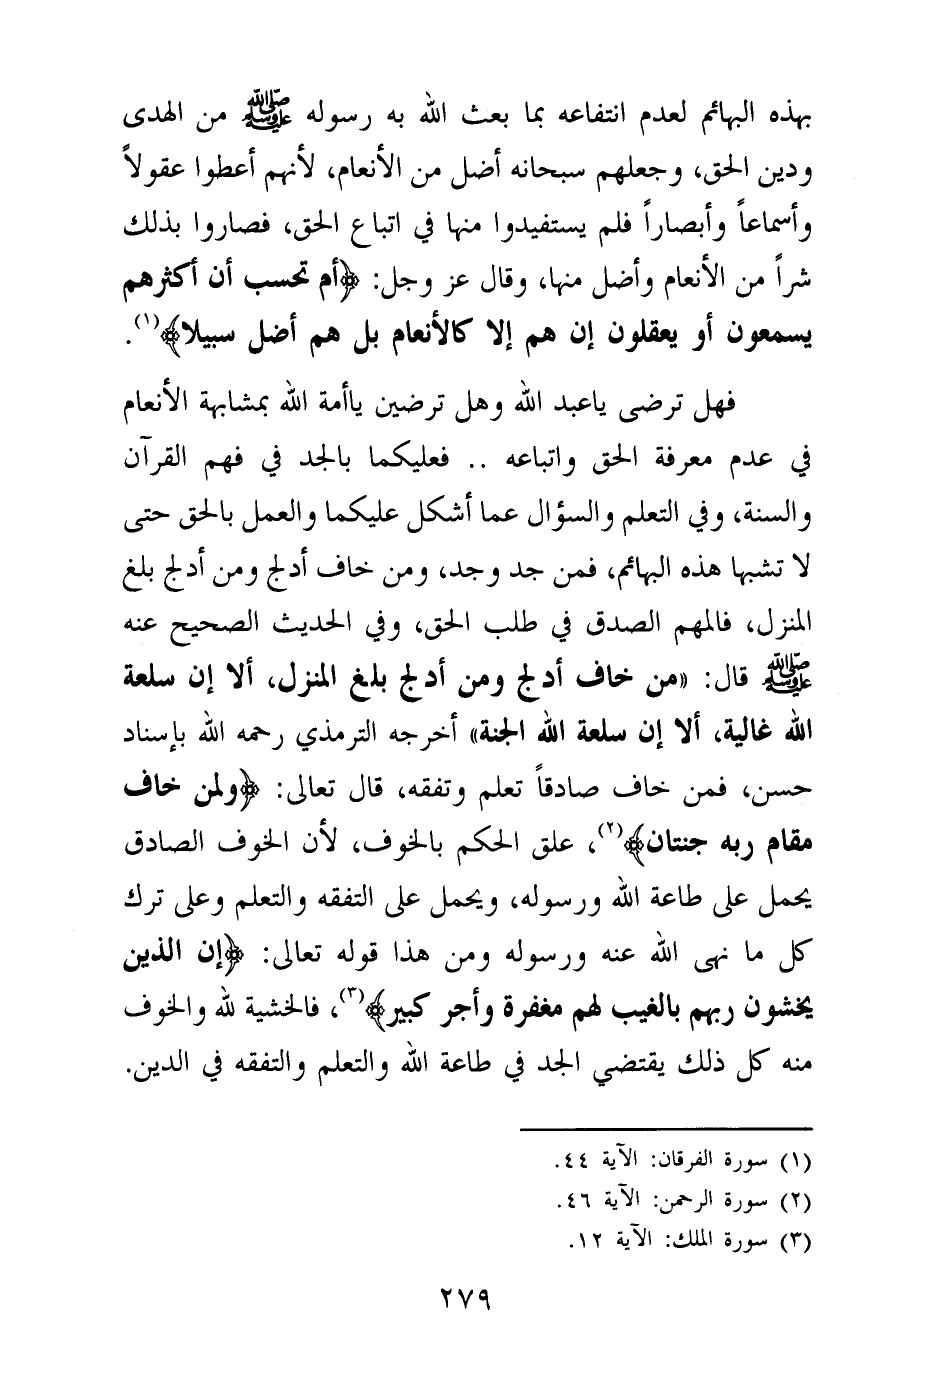 بهذه البهائم لعدم انتفاعه بما بعث الله به رسوله ﷺ من الهدى
ودين الحق، وجعلهم سبحانه أضل من الأنعام، لأنهم أعطوا عقولاً
وأسماعاً وأبصاراً فلم يستفيدوا منها في اتباع الحق، فصاروا بذلك
شراً من الأنعام وأضل منها، وقال عز وجل: ﴿أم تحسب أن أكثرهم
يسمعون أو يعقلون إن هم إلا كالأنعام بل هم أضل سبيلا﴾(١).
فهل ترضى ياعبد الله وهل ترضين ياأمة الله بمشابهة الأنعام
في عدم معرفة الحق واتباعه .. فعليكما بالجد في فهم القرآن
والسنة، وفي التعلم والسؤال عما أشكل عليكما والعمل بالحق حتى
لا تشبها هذه البهائم، فمن جد وجد، ومن خاف أدلج ومن أدلج بلغ
المنزل، فالمهم الصدق في طلب الحق، وفي الحديث الصحيح عنه
ﷺ قال: «من خاف أدلج ومن أدلج بلغ المنزل، ألا إن سلعة
الله غالية، ألا إن سلعة الله الجنة» أخرجه الترمذي رحمه الله بإسناد
حسن، فمن خاف صادقاً تعلم وتفقه، قال تعالى: ﴿ولمن خاف
مقام ربه جنتان﴾(٢)، علق الحكم بالخوف، لأن الخوف الصادق
يحمل على طاعة الله ورسوله، ويحمل على التفقه والتعلم وعلى ترك
كل ما نهى الله عنه ورسوله ومن هذا قوله تعالى: ﴿إن الذين
يخشون ربهم بالغيب لهم مغفرة وأجر كبير﴾(٣)، فالخشية لله والخوف
منه كل ذلك يقتضي الجد في طاعة الله والتعلم والتفقه في الدين.
(١) سورة الفرقان: الآية ٤٤.
(٢) سورة الرحمن: الآية ٤٦.
(٣) سورة الملك: الآية ١٢.
٢٧٩